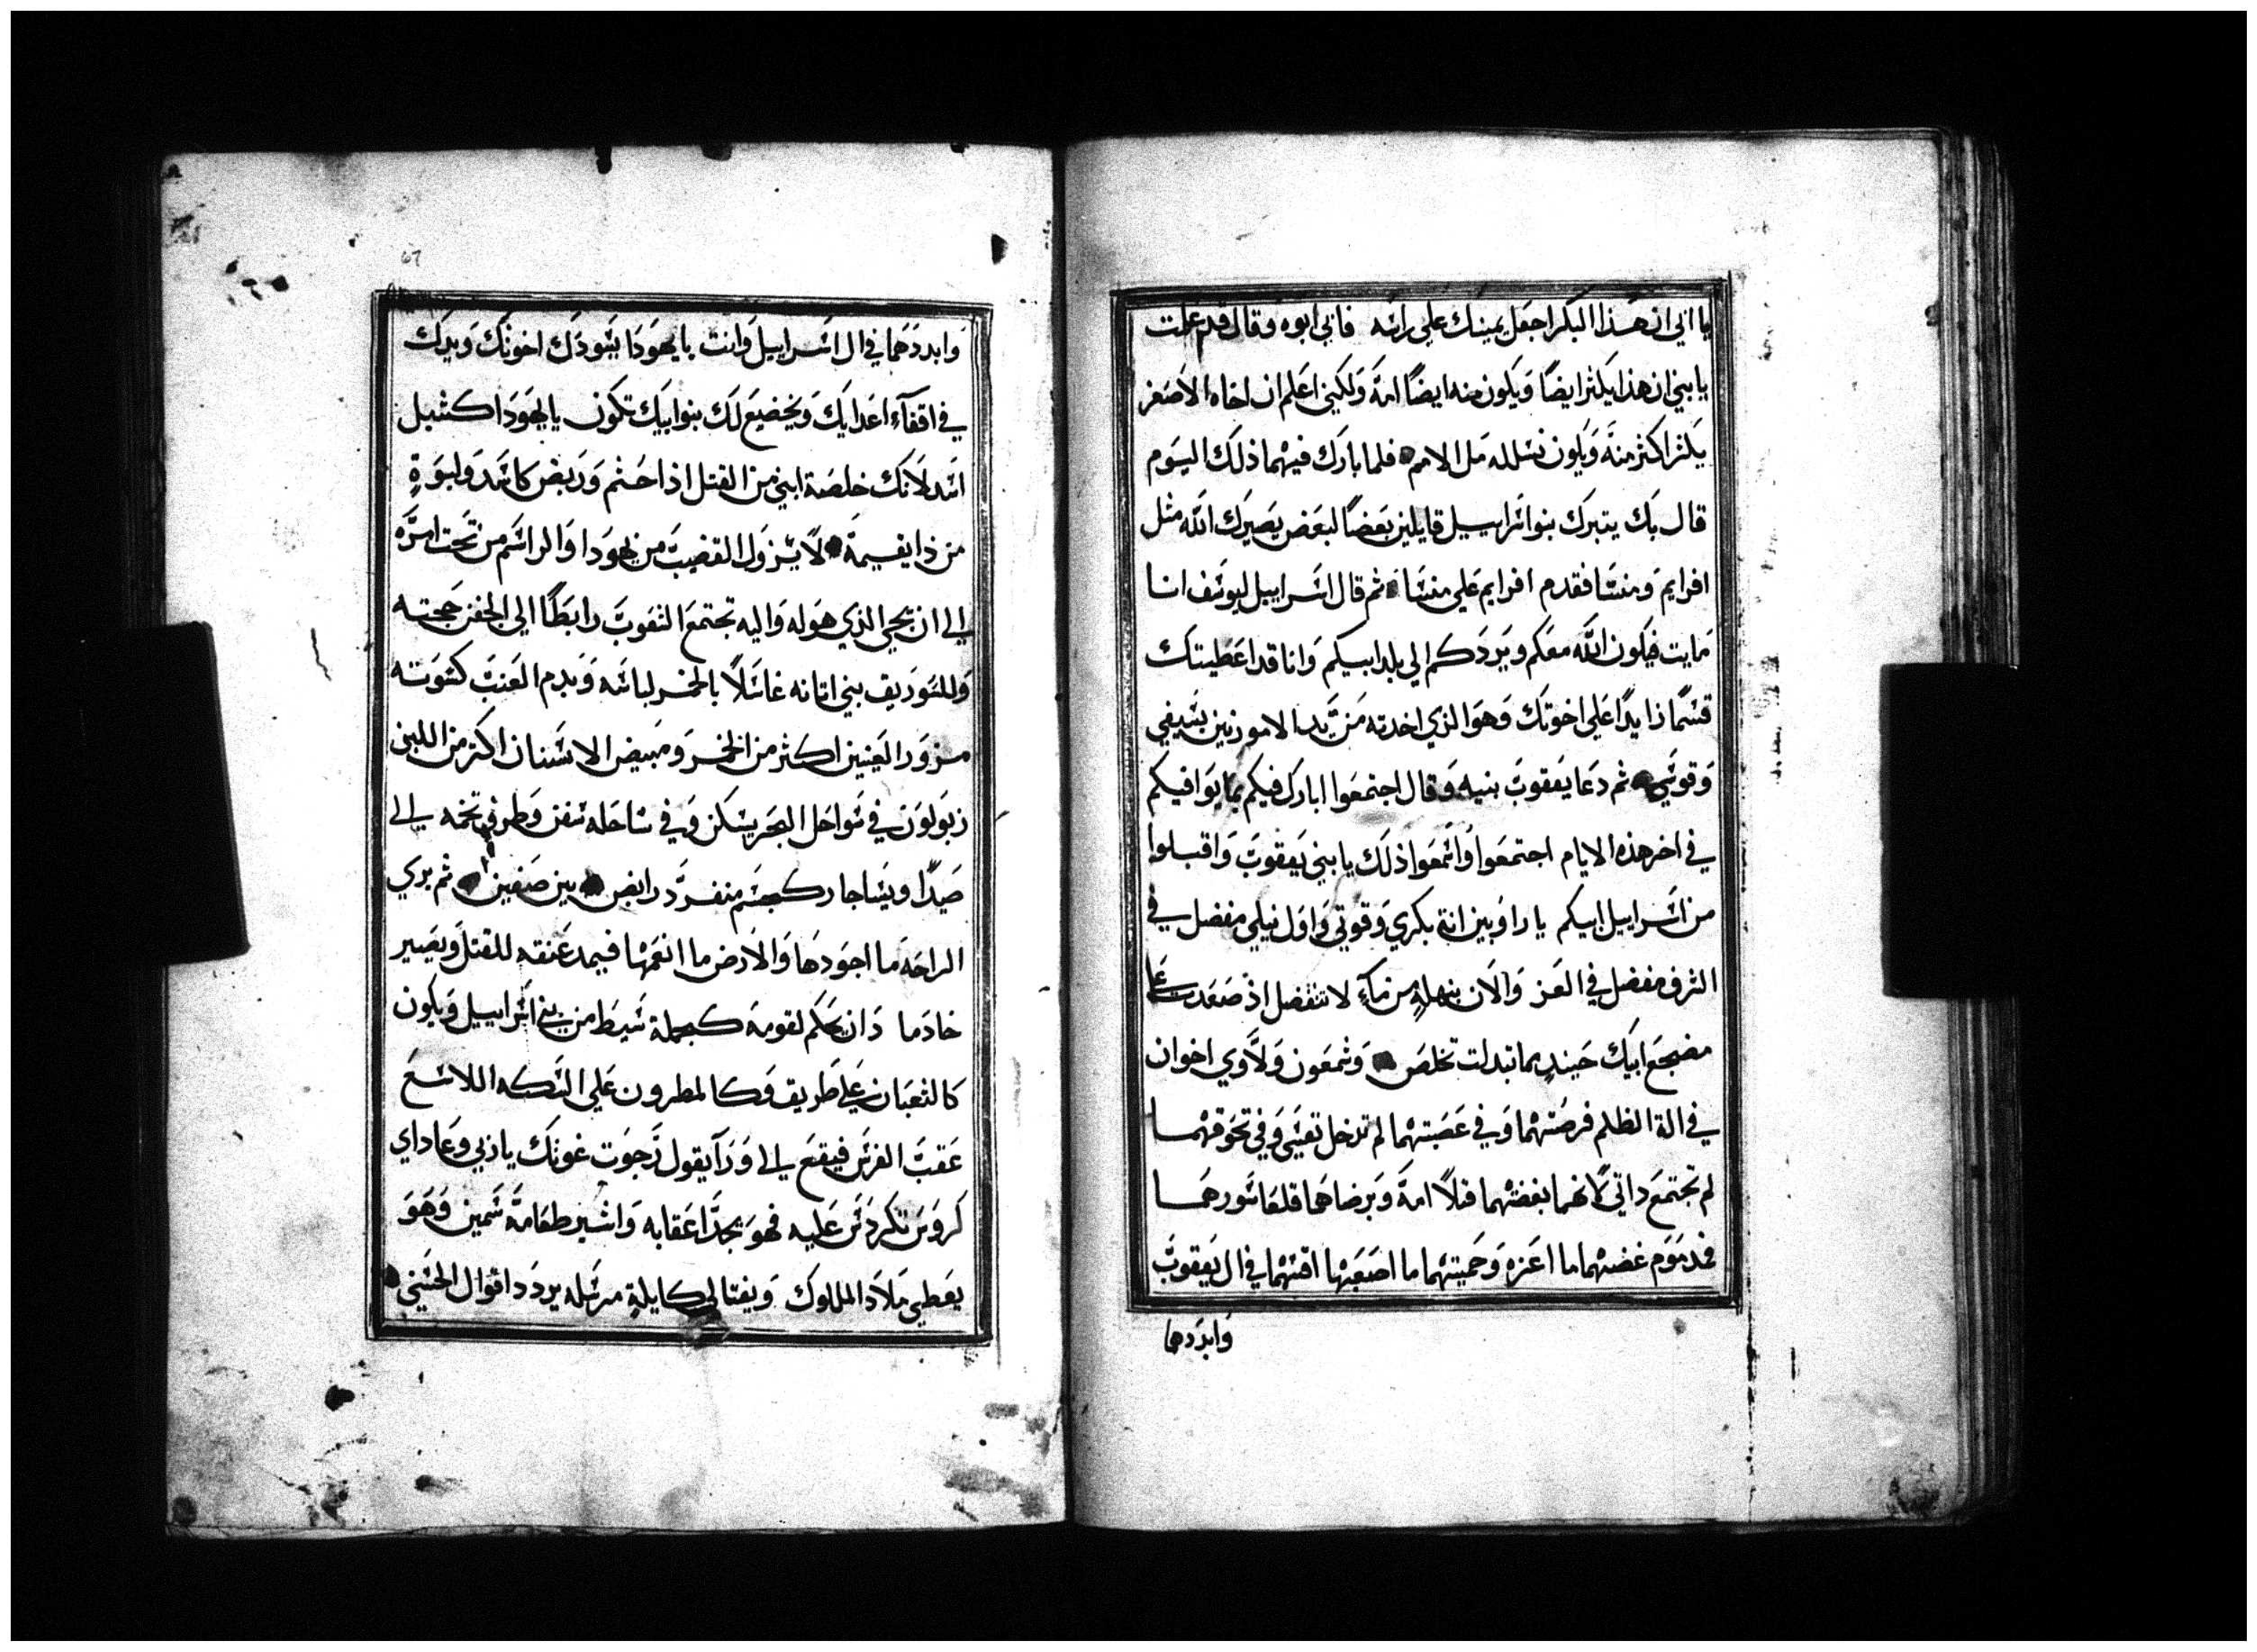 يا ابي ان هذا البكر اجعل يمينك علي راسه فابي ابوه وقال قد علمت
يا بني ان هذا يكثر ايضًا ويكون منه ايضًا امة ولكني اعلم ان اخاه الاصغر
يكثر اكثر منه ويكون نسله مل الامم فلما بارك فيهما ذلك اليوم
قال بك يتبرك بنوا اسراييل قايلين بعضًا لبعض يصيرك الله مثل
افرايم ومنسا فقدم افرايم علي منسا ثم قال اسراييل ليوسف انا
مايت فيكون الله معكم ويردكم الي بلد ابيكم وانا قد اعطيتك
قسمًا زايدًا علي اخوتك وهو الذي اخدته من يد الاموزنين بسيفي
وقوسي ثم دعا يعقوب بنيه وقال اجتمعوا ابارك فيكم بما يوافيكم
في اخر هذه الايام اجتمعوا واسمعوا ذلك يا بني يعقوب واقبلوا
من اسراييل ابيكم يا راوبين انة بكري وقوتي واول نيلي مفضل في
الشرف مفضل في العز والان بنهلةٍ من مآءٍ لا تتفضل اذ صعدت علي
مضجع ابيك حينيدٍ بما تبدلت تخلص وشمعون ولاوي اخوان
في الة الظلم فرصتهما وفي عصبتهما لم تدخل نفسي وفي تحوقهما
لم تجتمع داتي لانهما بغضتهما قتلاً امة وبرضاهما قلعا سورهما
فمدموم غضبهما ما اعزه وحميتهما ما اصعبها اقسهما في ال يعقوب
وابددهما
وابددهما في ال اسراييل وانت يا يهودا يسودك اخوتك ويدك
في اقفآء اعدايك ويخضع لك بنوا ابيك تكون يا يهودا كشبل
اسد لانك خلصة ابني من القتل اذا حثم وربض كاسد ولبوةٍ
من ذا يقيمة لا يزول القضيب من يهودا والراسم من تحت امره
الي ان يحي الذي هو له واليه تجتمع الشعوب رابطًا الي الجفن جحته
وللسوريق بني اتانه غاسلاً بالخمر لباسه وبدم العنب كسوته
مزور العينين اكثر من الخمر ومبيض الاسنان اكتر من اللبن
زبولون في سواحل البحر يسكن وفي ساحله سفن وطرفي تخمه الي
صيدًا ويساجار كجسم منفرد رابض بين صفين ثم يري
الراحه ما اجودها والارض ما انعمها فيمد عنقه للقتل ويصير
خادما دان يحكم لقومة كجملة سبط من بني اسراييل ويكون
كالثعبان علي طريق وكالمطرون علي السكه اللاسع
عقب الفرس فيقع الي ورآ يقول رجوت غوثك يا ربي وعاداي
كروس تكردس عليه فهو يجد اعقابه واشير طعامة سمين وهو
يعطي ملاد الملوك ويفتالي كايلةٍ مرسله يردد اقوال الحسني